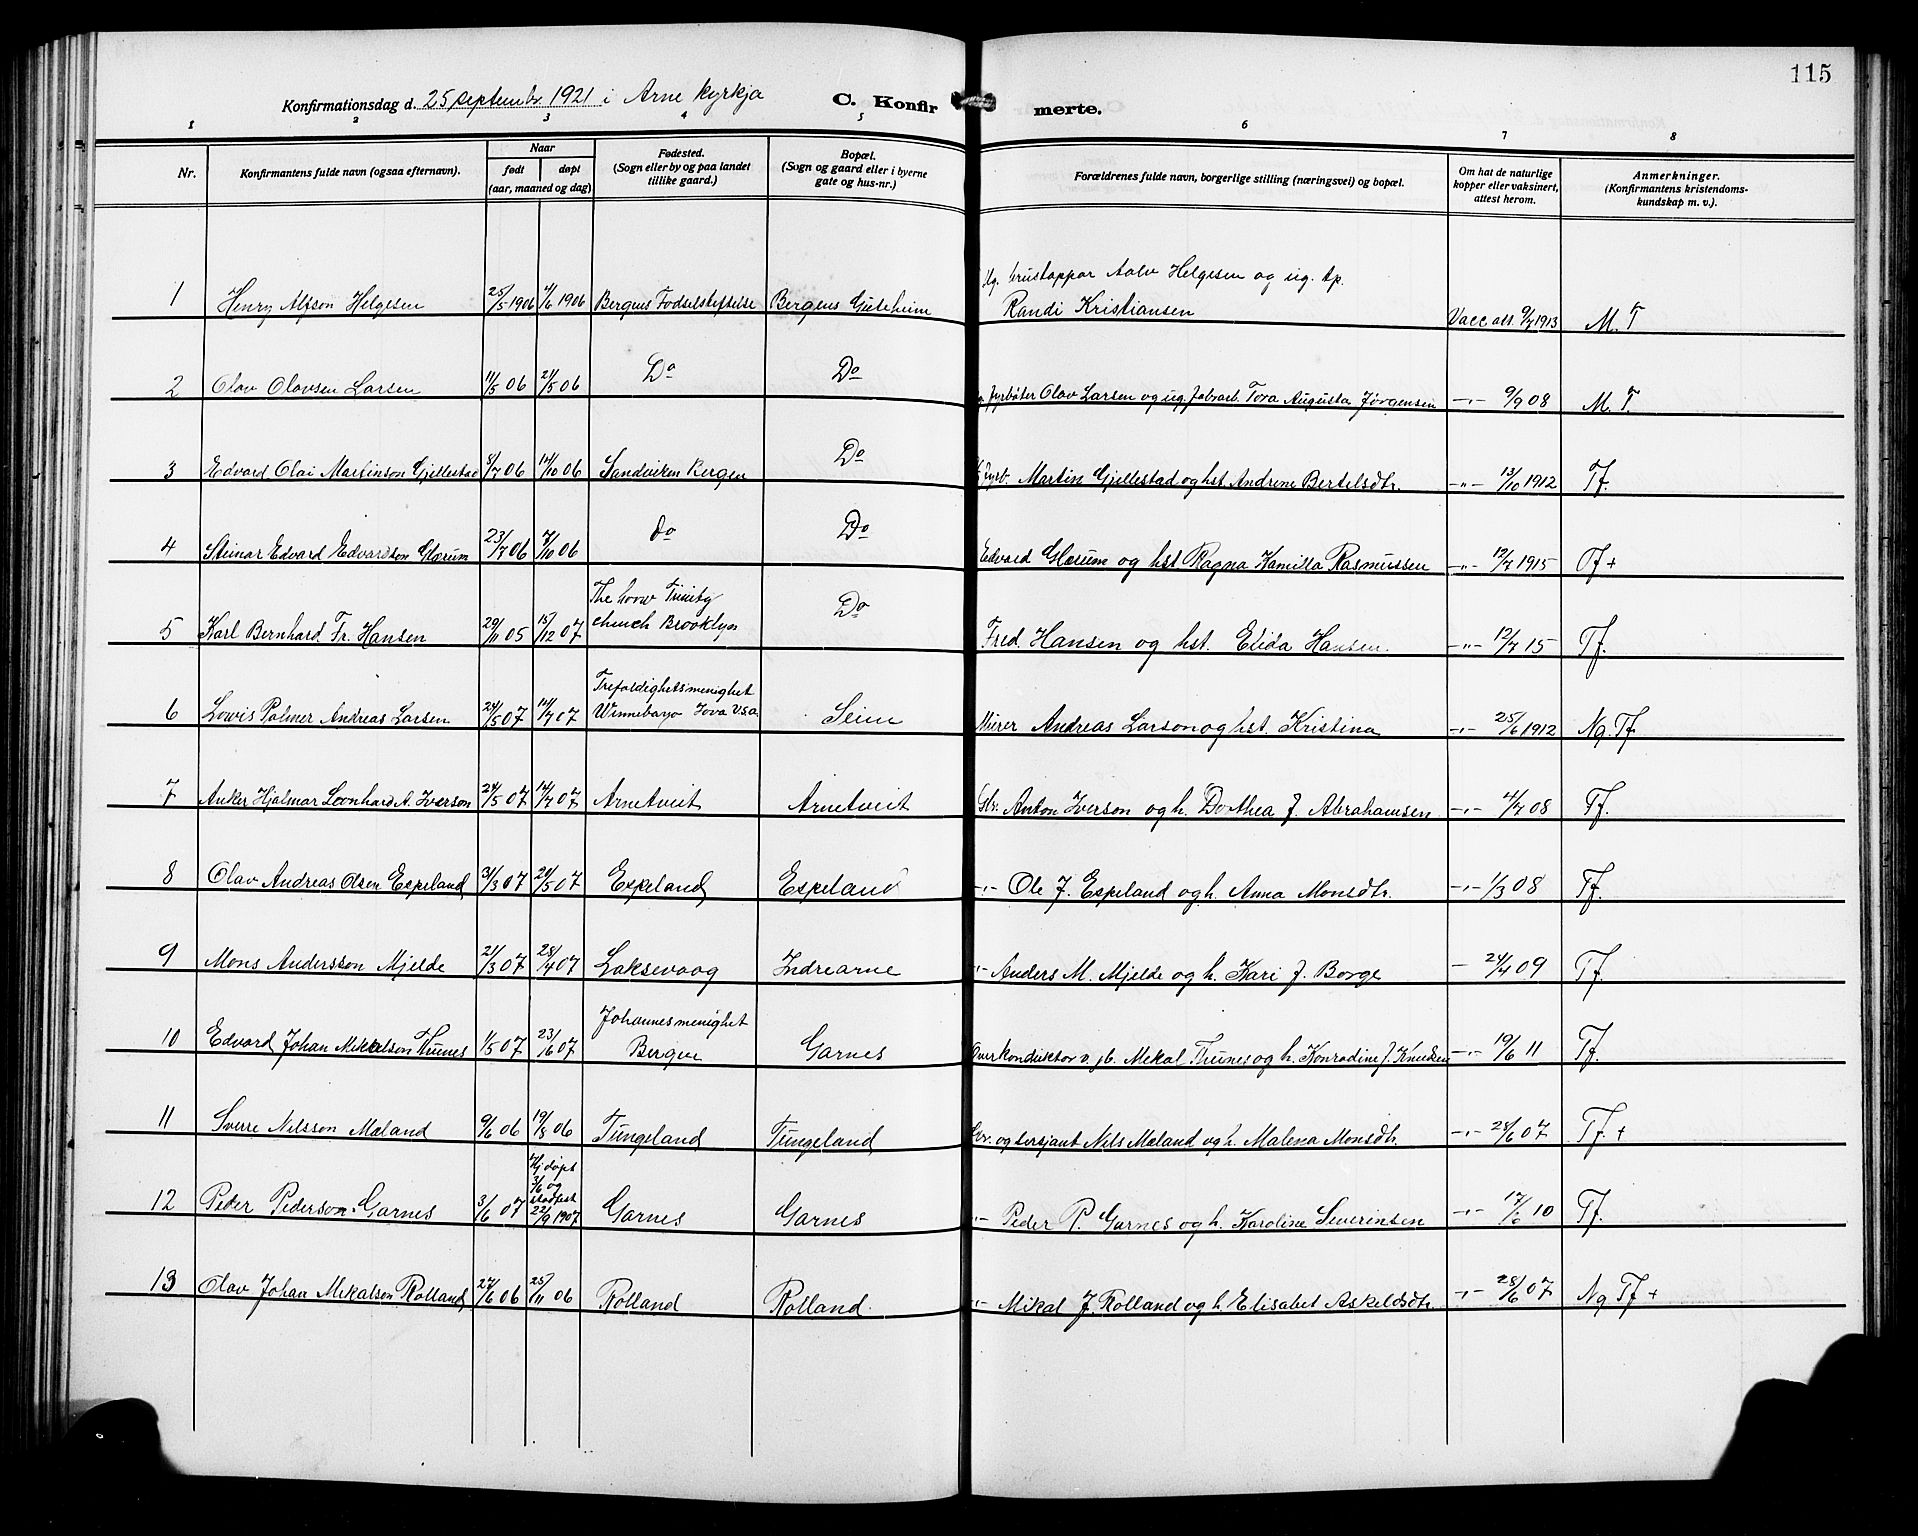 115
Konfirmationsdag d. 25 septembr. 1921 i Arne kyrkja C. Konfirmerte.
1 2 3 4 5 6 7 8
Nr.
Konfirmantens fulde navn (ogsaa efternavn).
Naar
født døpt
(aar, maaned og dag)
Fødested.
(Sogn eller by og paa landet
tillike gaard.)
Bopæl.
(Sogn og gaard eller i byerne
gate og hus-nr.)
Forældrenes fulde navn, borgerlige stilling (næringsvei) og bopæl.
Om hat de naturlige
kopper eller vaksinert,
attest herom.
Anmerkninger.
(Konfirmantens kristendoms-
kundskap m. v.).
Ug. Aalv Helgesen og ug. tp.
1 Henry Alfson Helgesen 25/5 1906 4/6 1906 Bergens Fødselstiftelse Bergens Guteheim Randi Kristiansen Vacc att. 9/7 1913 M. T
2 Olav Olavsen Larsen 11/5 06 21/5 06 Do Do Fyrbøter Olav Larsen og ug. fabrarb. Tora Augusta Jørgensen -"- 9/9 08 M. T.
3 Edvard Olai Martinson Gjellestad 8/7 06 14/10 06 Sandviken Bergen Do Fyrb. Martin Gjellestad og hst Andrine Bertelsdtr. -"- 13/10 1912 Tf.
4 Steinar Edvard Edvardson Glærum 23/7 06 7/10 06 Do Do Edvard Glærum og hst Ragna Kamilla Rasmussen -"- 12/7 1915 Of +
The Trinity
5 Karl Bernhard Fr. Hansen 29/11 05 15/12 07 church Brooklyn Do Fred. Hansen og hst. Elida Hansen. -"- 12/7 15 Tf.
Trefoldighetsmenighet
6 Lowis Palmer Andreas Larsen 24/5 07 14/7 07 Winnebago Iova U.S.a. Seim Murer Andreas Larson og hst. Kristina -"- 25/6 1912 Ng. Tf
7 Anker Hjalmar Leonhard A. Iverson 24/5 07 14/7 07 Arnetveit Arnetveit Gbr. Anton Iverson og h. Dorthea J. Abrahamsen -"- 4/7 08 Tf.
8 Olav Andreas Olsen Espeland 31/3 07 20/5 07 Espeland Espeland -"- Ole J. Espeland og h. Anna Monsdtr. -"- 1/3 08 Tf.
9 Mons Andersson Mjelde 21/3 07 28/4 07 Laksevaag Indrearne -"- Anders M. Mjelde og h. Kari J. Borge - 24/4 09 Tf.
Johannesmenighet
10 Edvard Johan Mikalson Thunes 1/5 07 23/6 07 Bergen Garnes Overkonduktør v. jb. Mekal Thunes og h. Konradine J. Knudsen -"- 19/6 11 Tf.
11 Sverre Nilsson Mæland 9/6 06 19/8 06 Tungeland Tungeland Gbr. og sersjant Nils Mæland og h. Malena Monsdtr. -"- 28/6 07 Tf. +
Hj døpt
3/6 og
stadfest
12 Peder Pederson Garnes 3/6 07 22/9 1907 Garnes Garnes -"- Peder P. Garnes og h. Karoline Severinsen -"- 17/6 10 Tf.
13 Olav Johan Mikalson Rolland 27/6 06 25/11 06 Rolland Rolland. -"- Mikal J. Rolland og h. Elisabet Askeldsdtr. -"- 28/6 07 Ng Tf +